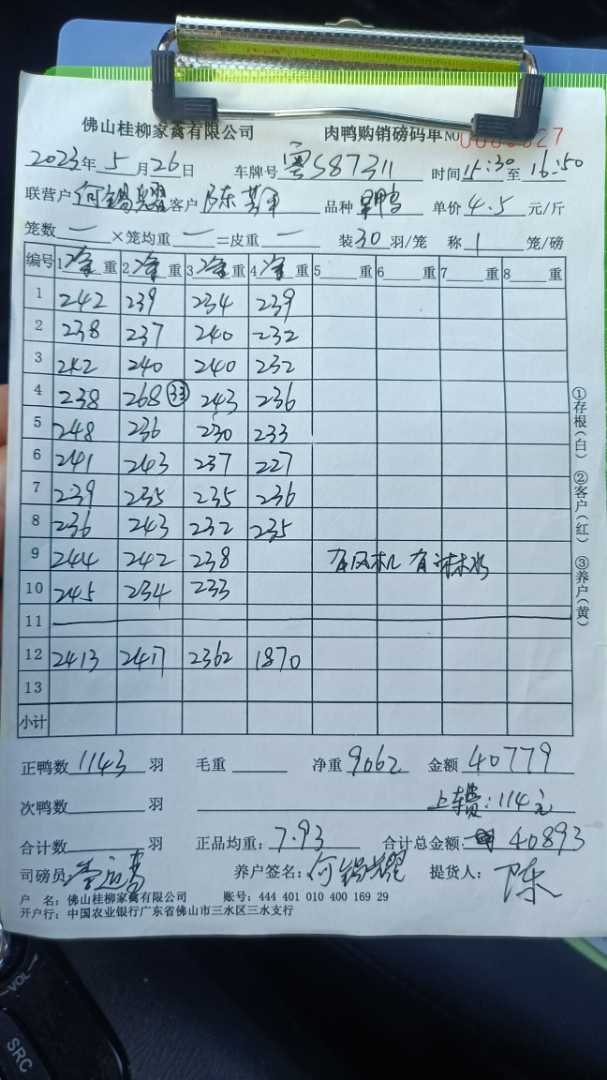 佛山桂柳家禽有限公司 肉鸭购销磅码单 NO
2023年5月26日 车牌号 粤S87311 时间 15:30 至 16:50
联营户 何锡耀 客户 陈 品种 鸭 单价 4.5 元/斤
笼数 一 ×笼均重 一 =皮重 一 装 30 羽/笼 称 1 笼/磅
编号 1 净 重 2 净 重 3 净 重 4 净 重 5 重 6 重 7 重 8 重
1 242 239 234 239
2 238 237 240 232
3 242 240 240 232
4 238 268 33 243 236
5 248 236 230 233
6 241 243 237 227
7 239 235 235 236
8 236 243 232 235
9 244 242 238 有风机 有淋水
10 245 234 233
11
12 2413 2417 2362 1870
13
小计
正鸭数 1143 羽 毛重 净重 9062 金额 40779
次鸭数 羽 上车费:114元
合计数 羽 正品均重: 7.93 合计总金额: 40893
司磅员: 养户签名: 何锡耀 提货人: 陈
户 名: 佛山桂柳家禽有限公司 账号: 444 401 010 400 169 29
开户行: 中国农业银行广东省佛山市三水区三水支行
①存根(白) ②客户(红) ③养户(黄)
VOL
SRC